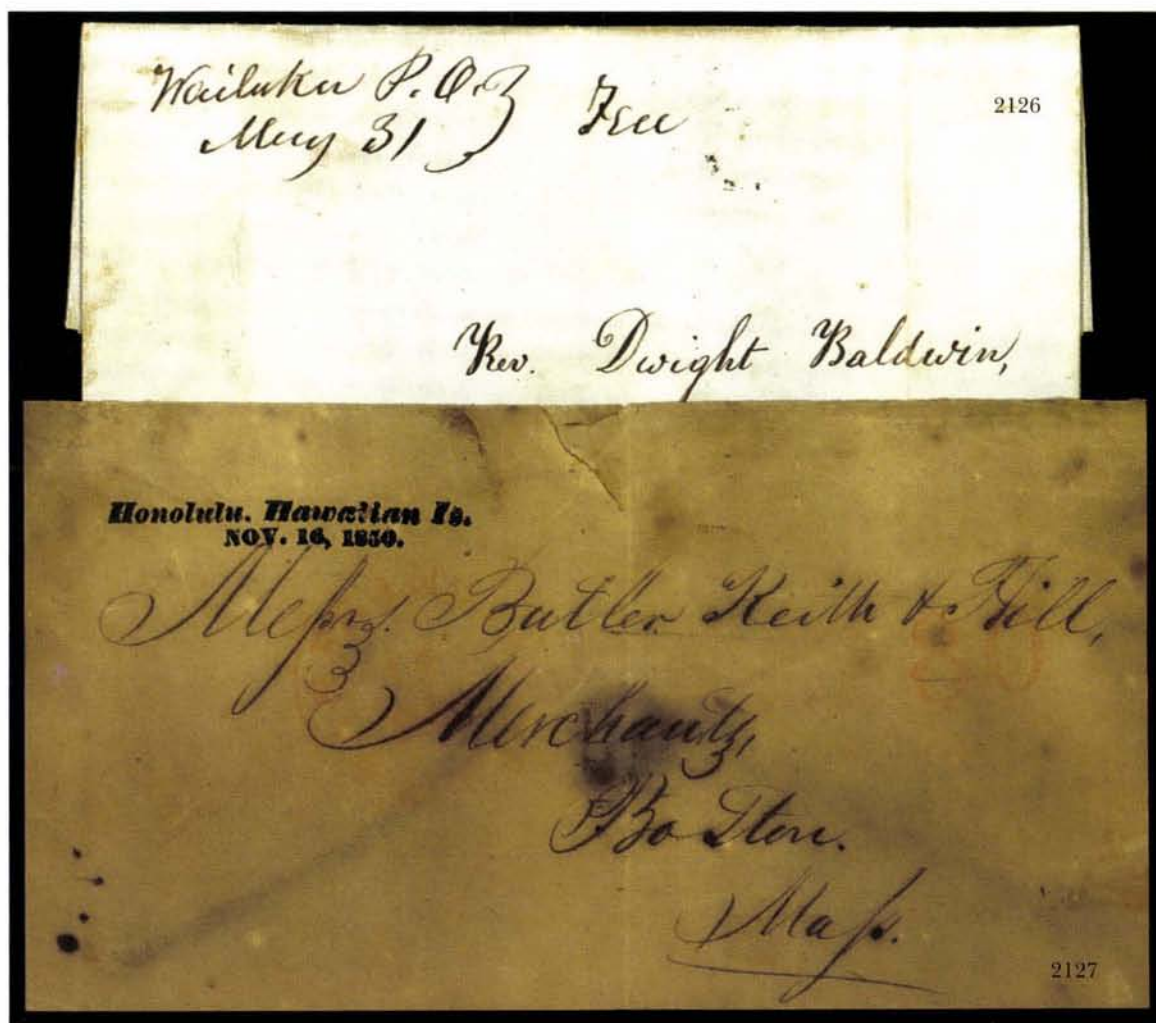 Wailuku P.O. Free
May 31
2126
Rev. Dwight Baldwin,
Honolulu. Hawaiian Is.
NOV. 16, 1850.
Messrs. Butler Keith & Hill,
80
Merchants,
Boston.
Mass.
2127